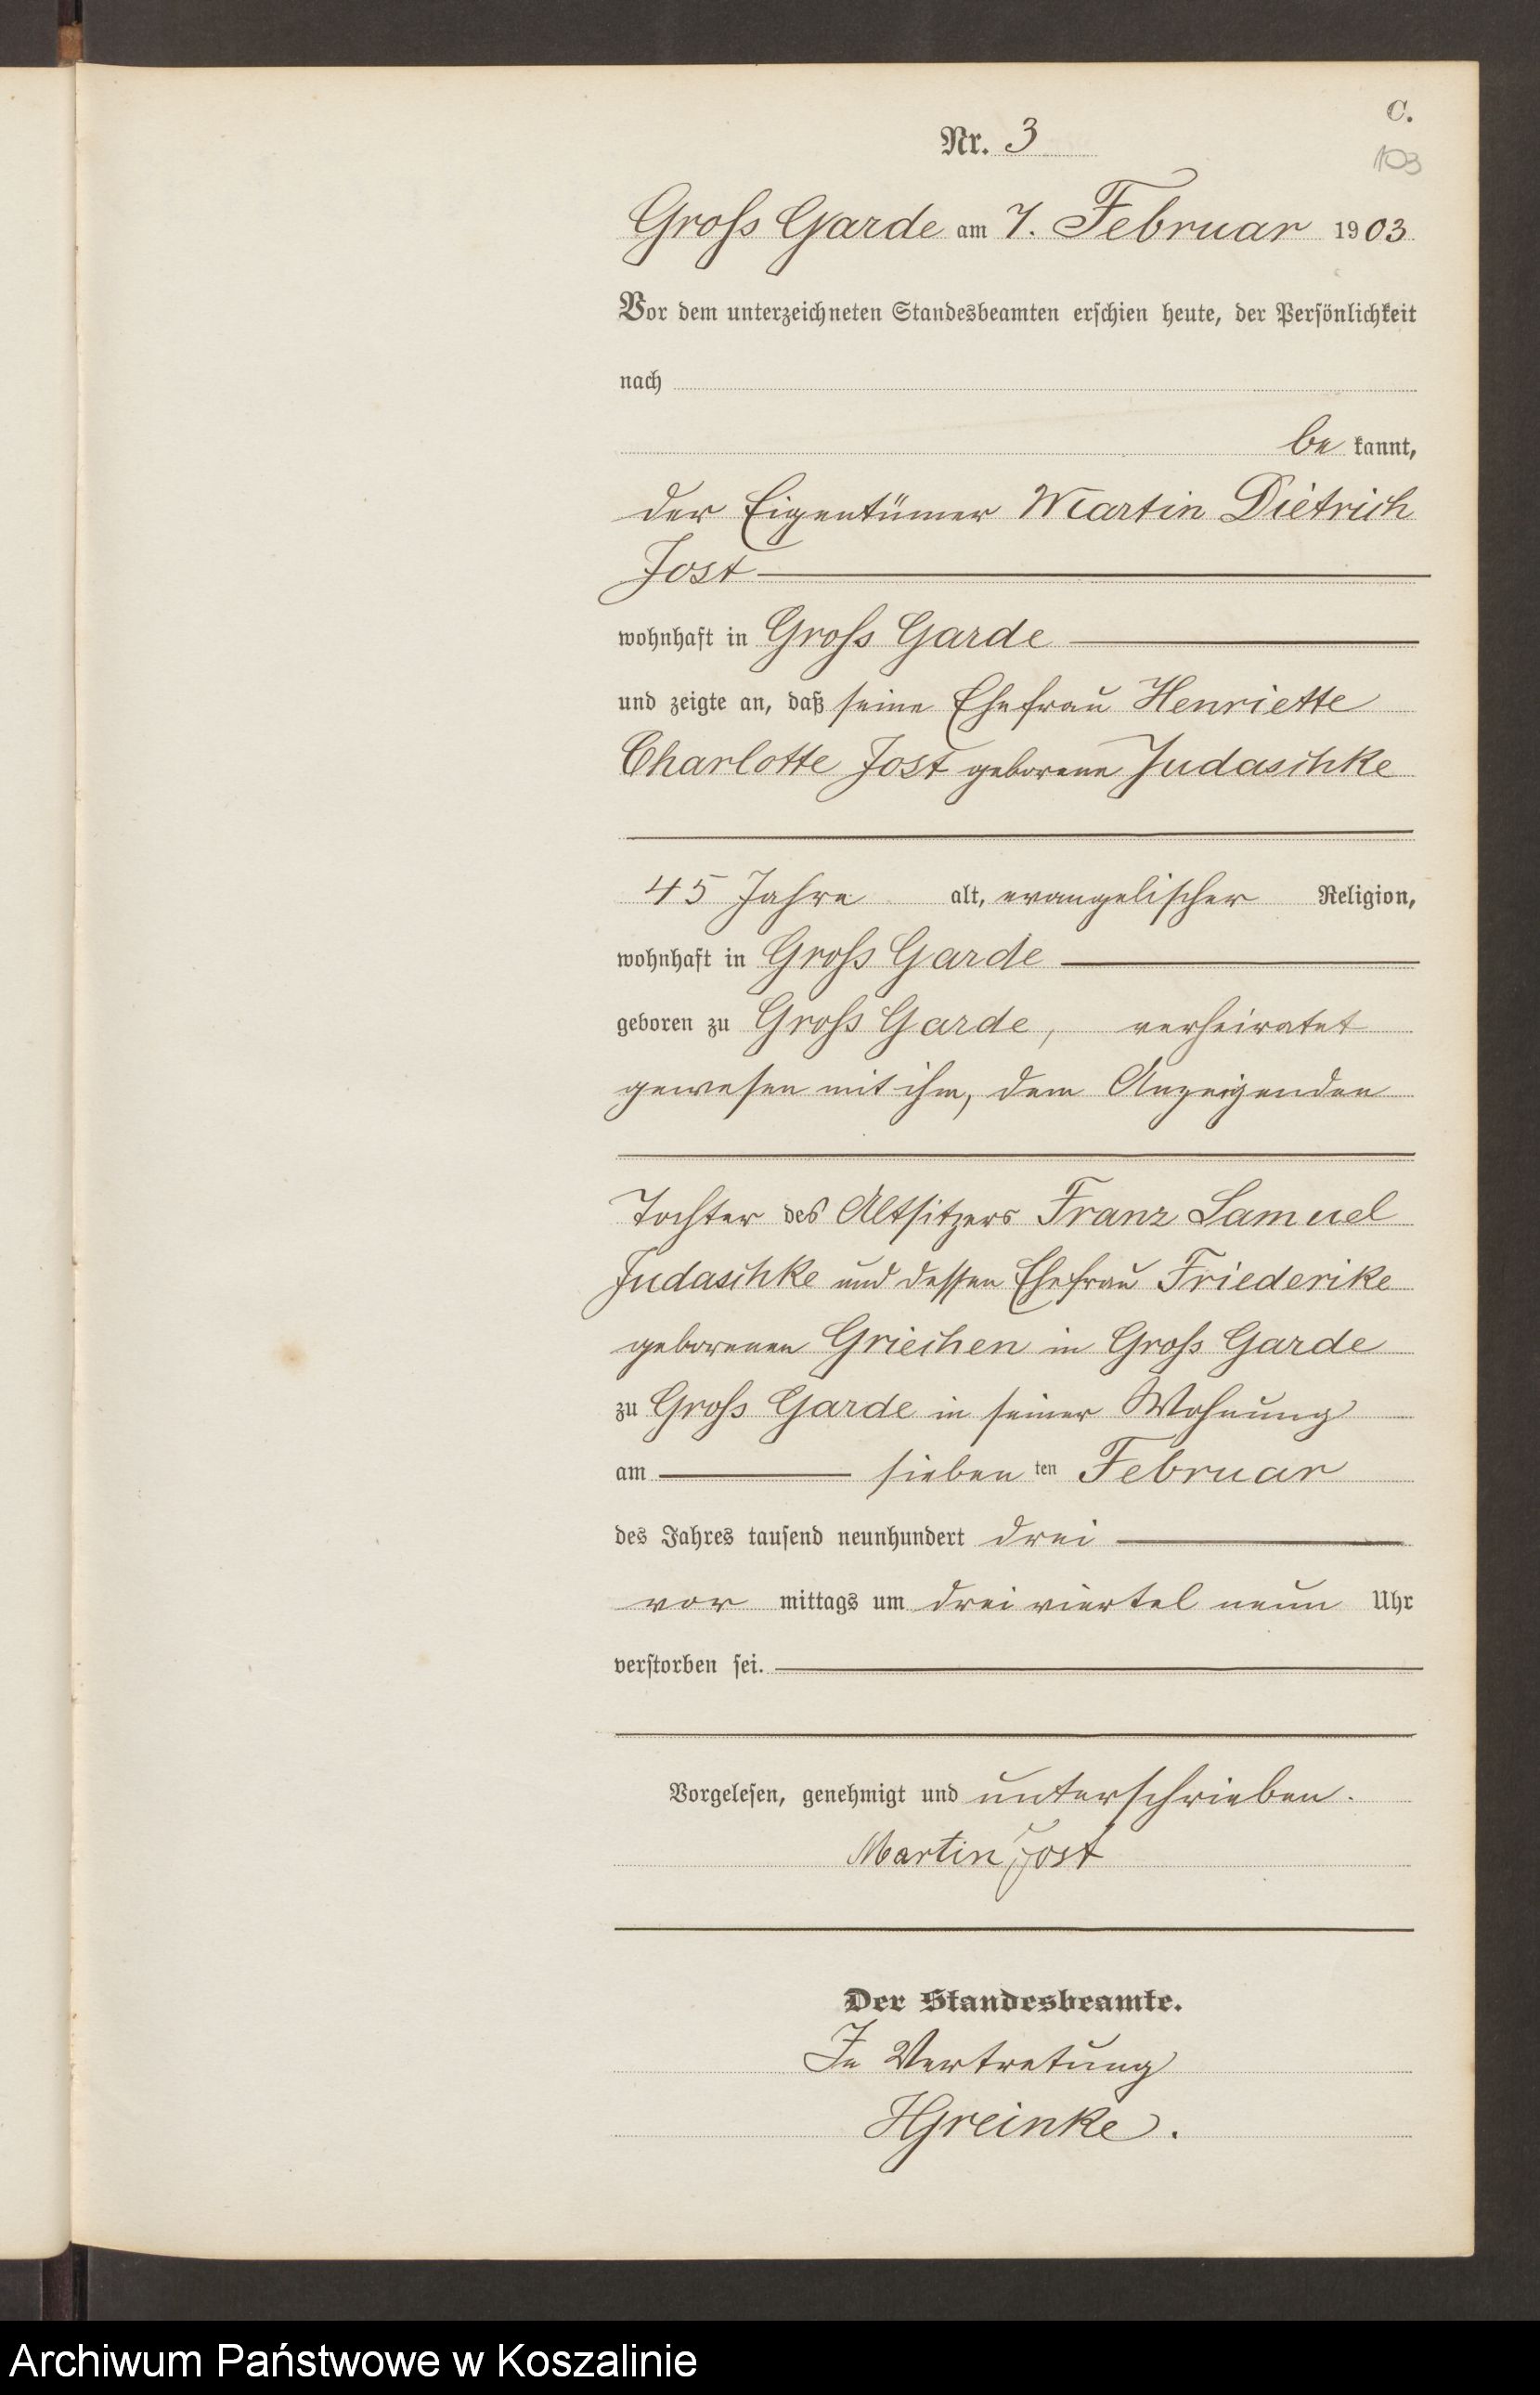 C.
Nr. 3
103
Gross Garde am 7. Februar 1903
Vor dem unterzeichneten Standesbeamten erschien heute, der Persönlichkeit
nach
be kannt,
der Eigentümer Martin Dietrich
Jost
wohnhaft in Gross Garde
und zeigte an, daß seine Ehefrau Henriette
Charlotte Jost geborene Judaschke
45 Jahre alt, evangelischer Religion,
wohnhaft in Gross Garde
geboren zu Gross Garde, verheiratet
gewesen mit ihm, dem Anzeigenden
Tochter des Altsitzers Franz Samuel
Judaschke und dessen Ehefrau Friederike
geborenen Griechen in Gross Garde
zu Gross Garde in seiner Wohnung
am sieben ten Februar
des Jahres tausend neunhundert drei
vor mittags um drei viertel neun Uhr
verstorben sei.
Vorgelesen, genehmigt und unterschrieben.
Martin Jost
Der Standesbeamte.
In Vertretung
HGreinke.
Archiwum Państwowe w Koszalinie